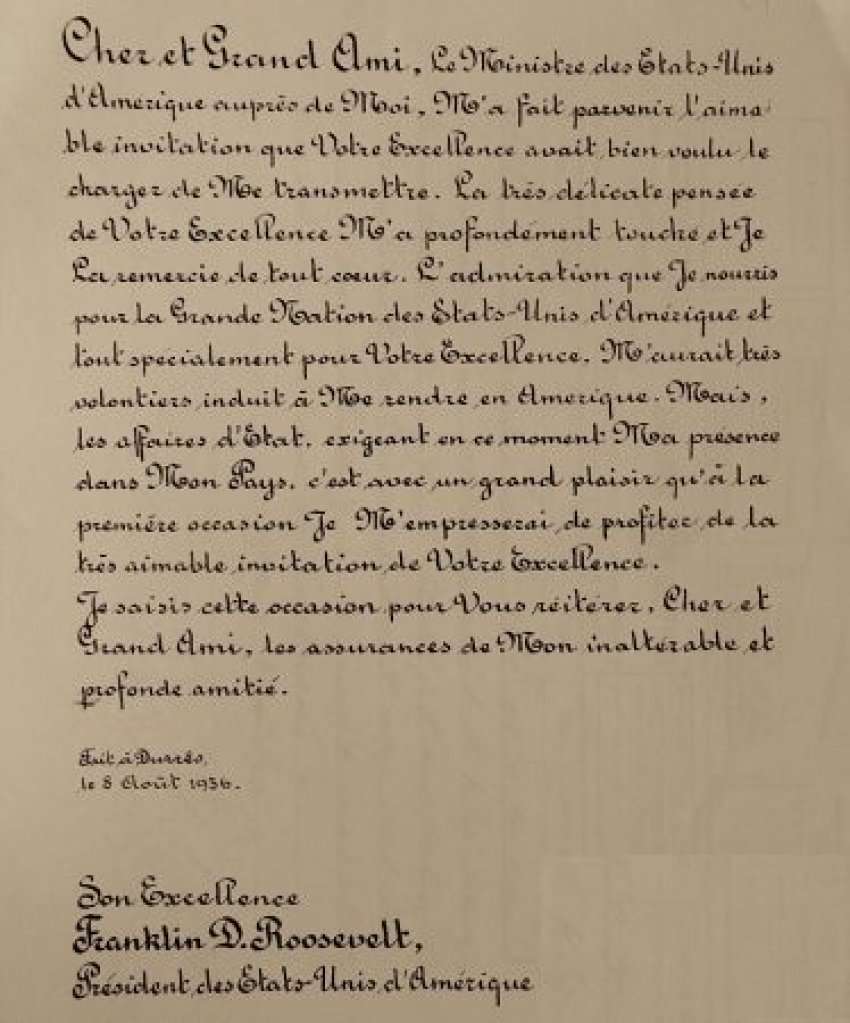 Cher et Grand Ami, Le Ministre des Etats-Unis
d'Amérique auprès de Moi, M'a fait parvenir l'aima-
ble invitation que Votre Excellence avait bien voulu le
charger de Me transmettre. La très délicate pensée
de Votre Excellence M'a profondément touché et Je
La remercie de tout cœur. L'admiration que Je nourris
pour la Grande Nation des Etats-Unis d'Amérique et
tout spécialement pour Votre Excellence, M'aurait très
volontiers induit à Me rendre en Amérique. Mais,
les affaires d'Etat, exigeant en ce moment Ma présence
dans Mon Pays, c'est avec un grand plaisir qu'à la
première occasion Je M'empresserai de profiter de la
très aimable invitation de Votre Excellence.
Je saisis cette occasion pour Vous réitérer, Cher et
Grand Ami, les assurances de Mon inaltérable et
profonde amitié.
Fait à Durrës,
le 8 Août 1936.
Son Excellence
Franklin D. Roosevelt,
Président des Etats-Unis d'Amérique